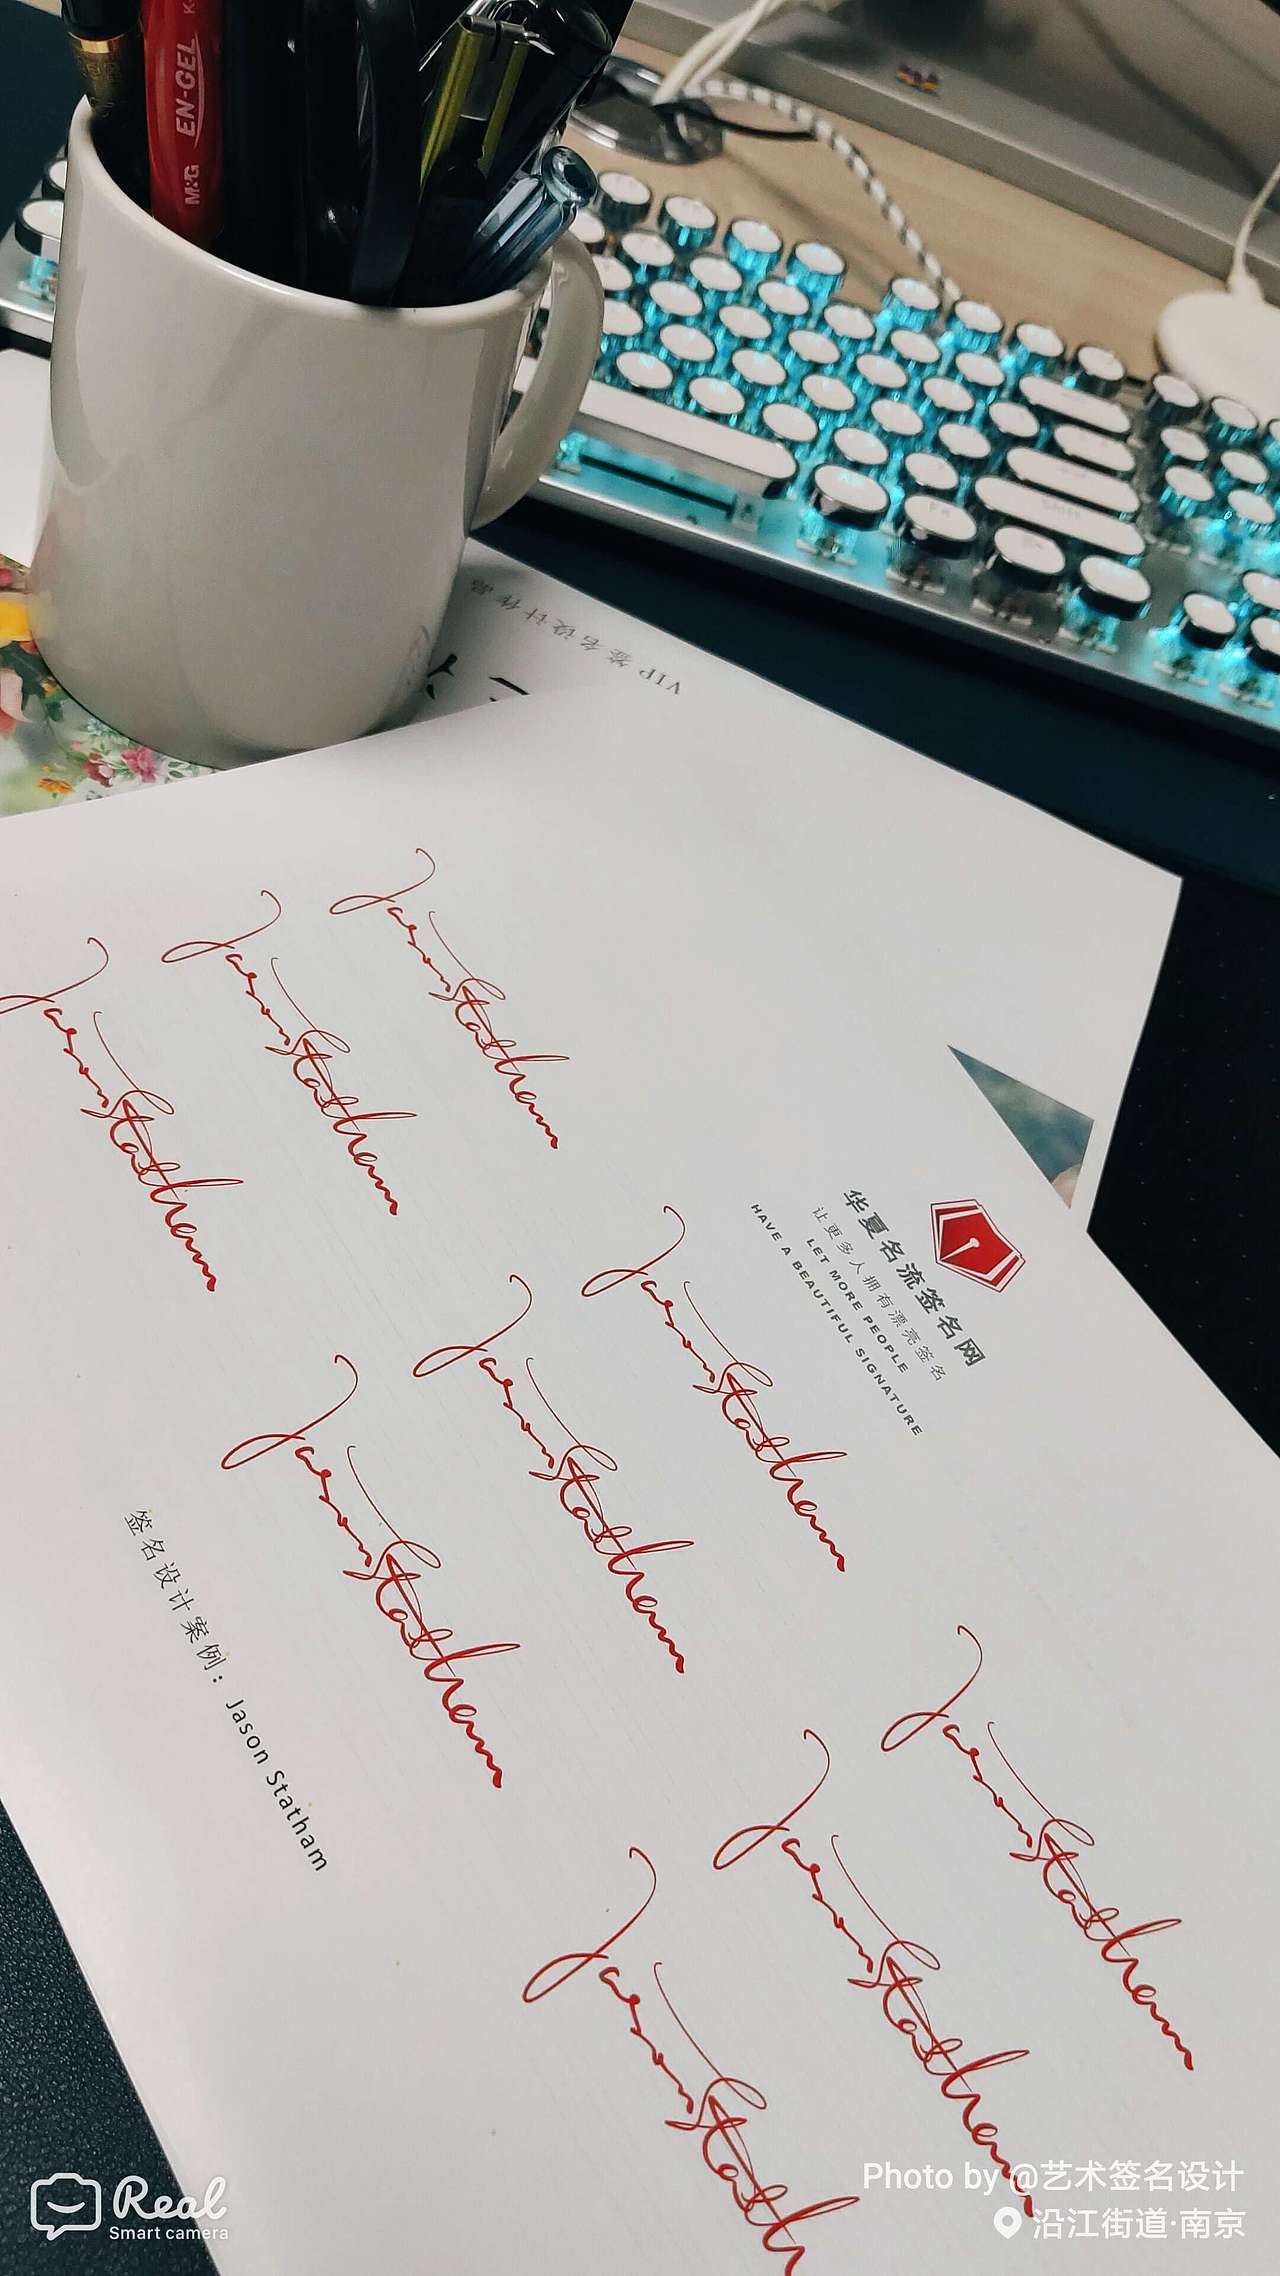 EN-GEL
M&G
VIP 签名设计作品
华夏名流签名网
让更多人拥有漂亮签名
LET MORE PEOPLE
HAVE A BEAUTIFUL SIGNATURE
Jason Statham
Jason Statham
Jason Statham
Jason Statham
Jason Statham
Jason Statham
Jason Statham
Jason Statham
Jason Stath
签名设计案例：Jason Statham
Real
Smart camera
Photo by @艺术签名设计
沿江街道·南京